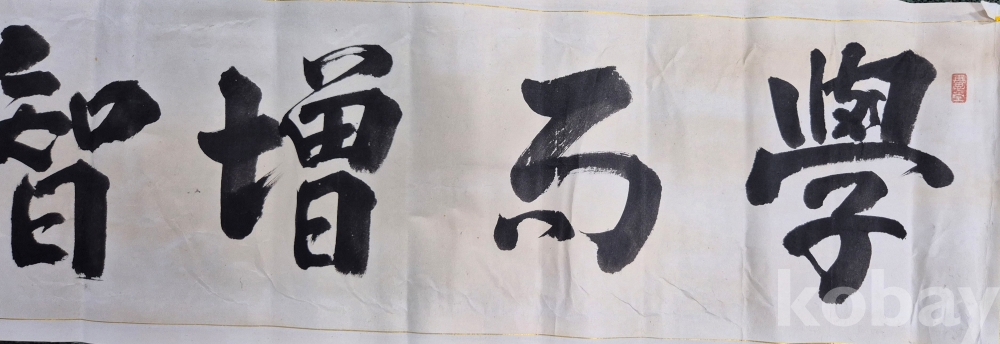 學而增智
kobay